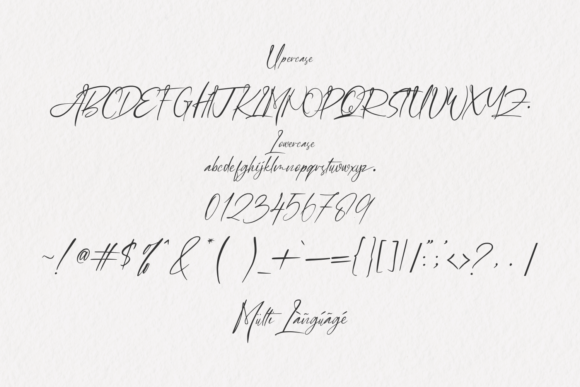 Uppercase
ABCDEFGHIJKLMNOPQRSTUVWXYZ.
Lowercase
abcdefghijklmnopqrstuvwxyz.
0123456789
~!@#$%^&*()_+`-={}[]|/:";'<>?,./
Multi Làñgúãgé